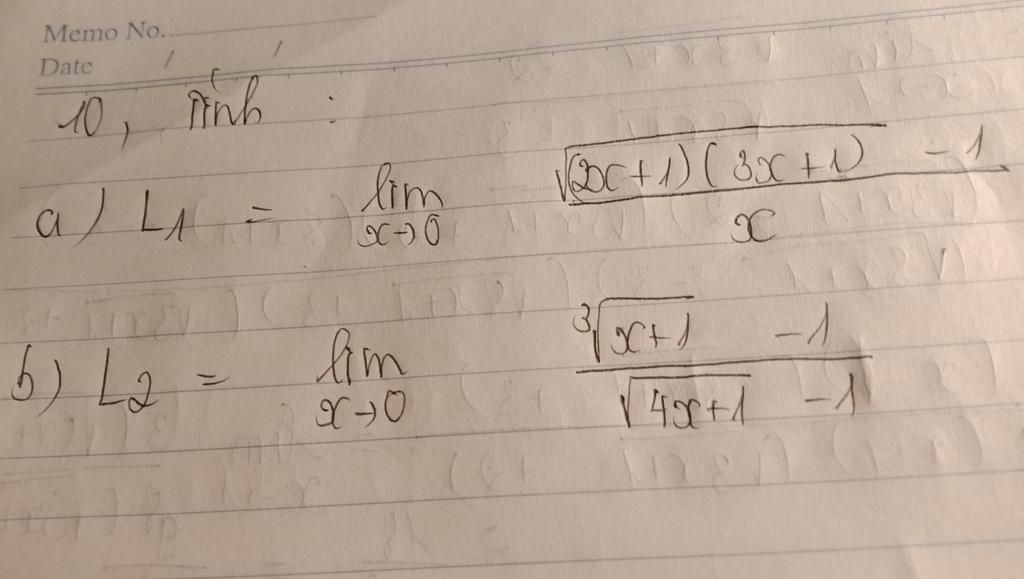 Memo No.
Date / /
10, Tính :
a) L₁ = lim x→0 (√((2x+1)(3x+1)) - 1) / x
b) L₂ = lim x→0 (³√(x+1) - 1) / (√(4x+1) - 1)